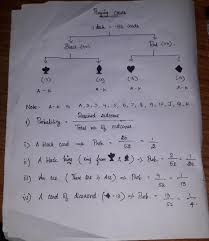 Playing cards
1 deck = 52 cards
Black (26)
Red (26)
(13) (13) (13) (13)
A - K A - K A - K A - K
Note: A-K is A, 2, 3, 4, 5, 6, 7, 8, 9, 10, J, Q, K
i) Probability = Required outcomes / Total no of outcomes
i) A black card → Prob. = 26/52 = 1/2
ii) A black king (any from ♣ & ♠) → Prob. = 2/52 = 1/26
iii) An ace (There are 4 aces) → Prob = 4/52 = 1/13
iv) A card of diamond (♦ - 13) → Prob. = 13/52 = 1/4